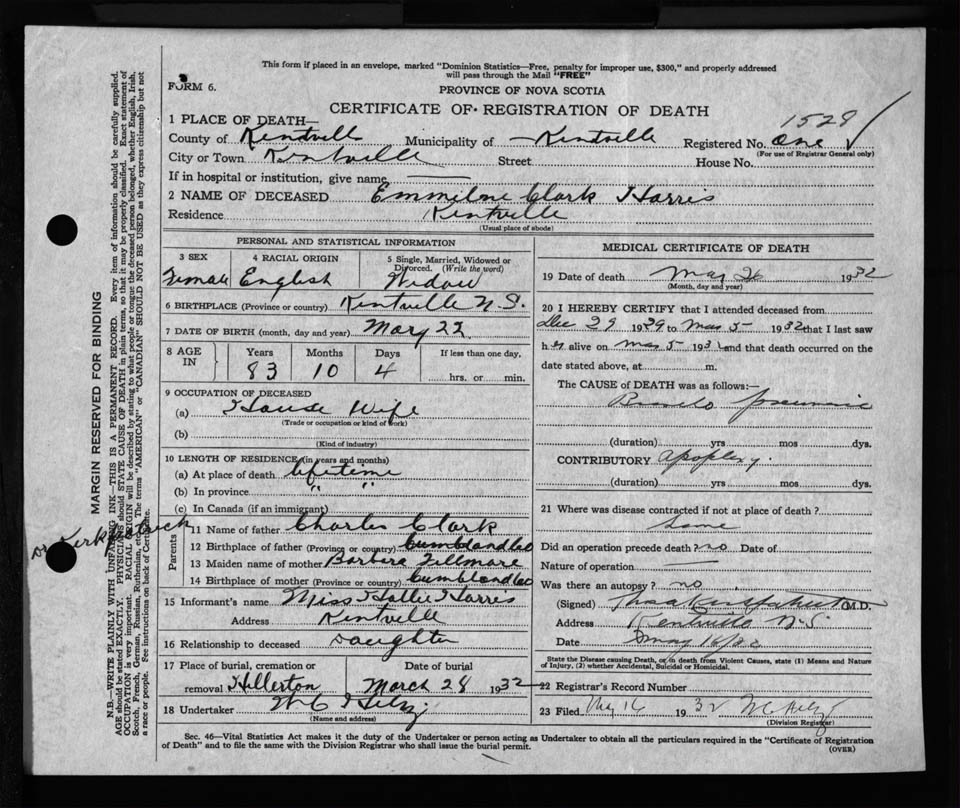 This form if placed in an envelope, marked "Dominion Statistics—Free, penalty for improper use, $300," and properly addressed
will pass through the Mail "FREE"
FORM 6.
PROVINCE OF NOVA SCOTIA
CERTIFICATE OF REGISTRATION OF DEATH
1529
1 PLACE OF DEATH—
County of Kentville Municipality of Kentville Registered No. one
(For use of Registrar General only)
City or Town Kentville Street House No.
If in hospital or institution, give name
2 NAME OF DECEASED Emmilne Clark Harris
Residence Kentville
(Usual place of abode)
PERSONAL AND STATISTICAL INFORMATION
3 SEX 4 RACIAL ORIGIN 5 Single, Married, Widowed or
Divorced. (Write the word)
Female English Widow
6 BIRTHPLACE (Province or country) Kentville N.S.
7 DATE OF BIRTH (month, day and year) May 22
8 AGE IN Years Months Days If less than one day,
83 10 4 hrs. or min.
9 OCCUPATION OF DECEASED
(a) House Wife
(Trade or occupation or kind of work)
(b)
(Kind of industry)
10 LENGTH OF RESIDENCE (in years and months)
(a) At place of death lifetime
(b) In province " "
(c) In Canada (if an immigrant)
Parents
11 Name of father Charles Clark
12 Birthplace of father (Province or country) Cumbland Co
13 Maiden name of mother Barbara Fillmore
14 Birthplace of mother (Province or country) Cumbland Co
15 Informant's name Miss Hallie Harris
Address Kentville
16 Relationship to deceased Daughter
17 Place of burial, cremation or Date of burial
removal Hillerton March 28 1932
18 Undertaker
(Name and address)
MEDICAL CERTIFICATE OF DEATH
19 Date of death Mar 26 1932
(Month, day and year)
20 I HEREBY CERTIFY that I attended deceased from
Dec 29 1929 to Mar 5 1932 that I last saw
her alive on Mar 5 193 and that death occurred on the
date stated above, at m.
The CAUSE of DEATH was as follows:—
Broncho pneumonia
(duration) yrs mos dys.
CONTRIBUTORY apoplexy.
(duration) yrs mos dys.
21 Where was disease contracted if not at place of death?
Same
Did an operation precede death? no Date of
Nature of operation
Was there an autopsy? no
(Signed) M.D.
Address Kentville N.S.
Date May 16/32
State the Disease causing Death, or in death from Violent Causes, state (1) Means and Nature
of Injury, (2) whether Accidental, Suicidal or Homicidal.
22 Registrar's Record Number
23 Filed May 16 1932
(Division Registrar)
Sec. 46—Vital Statistics Act makes it the duty of the Undertaker or person acting as Undertaker to obtain all the particulars required in the "Certificate of Registration
of Death" and to file the same with the Division Registrar who shall issue the burial permit.
(OVER)
MARGIN RESERVED FOR BINDING
N.B.—WRITE PLAINLY WITH UNFADING INK—THIS IS A PERMANENT RECORD. Every item of information should be carefully supplied.
AGE should be stated EXACTLY. PHYSICIANS should STATE CAUSE OF DEATH in plain terms, so that it may be properly classified. Exact statement of
OCCUPATION is very important. RACIAL ORIGIN will be described by stating to what people or tongue the deceased person belonged, whether English, Irish,
Scotch, French, German, Russian, Ruthenian, etc. The terms "AMERICAN" or "CANADIAN" SHOULD NOT BE USED as they express citizenship but not
a race or people. See instructions on back of Certificate.
Dr Kirkpatrick